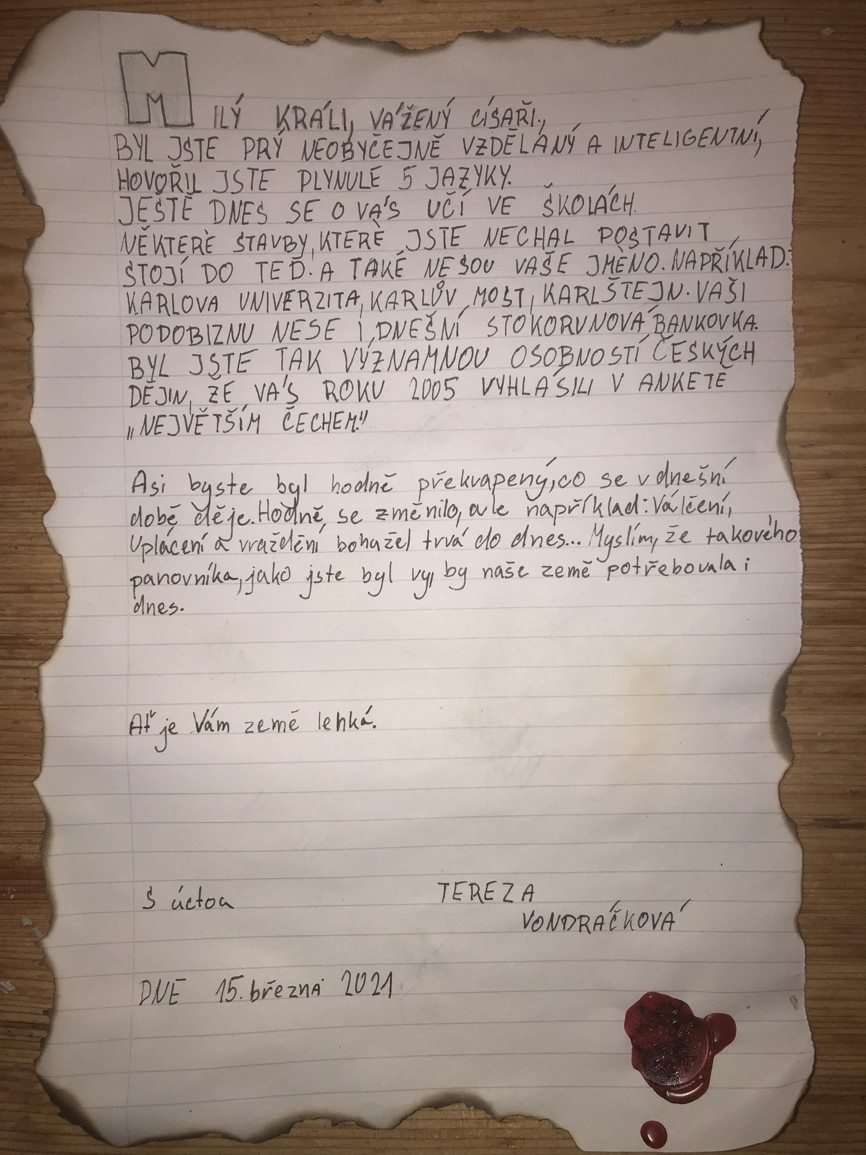 MILÝ KRÁLI, VÁŽENÝ CÍSAŘI,
BYL JSTE PRÝ NEOBYČEJNĚ VZDĚLÁNÝ A INTELIGENTNÍ,
HOVOŘIL JSTE PLYNULE 5 JAZYKY.
JEŠTĚ DNES SE O VÁS UČÍ VE ŠKOLÁCH.
NĚKTERÉ STAVBY, KTERÉ JSTE NECHAL POSTAVIT
STOJÍ DO TEĎ. A TAKÉ NESOU VAŠE JMÉNO. NAPŘÍKLAD:
KARLOVA UNIVERZITA, KARLŮV MOST, KARLŠTEJN. VAŠI
PODOBIZNU NESE I DNEŠNÍ STOKORUNOVÁ BANKOVKA.
BYL JSTE TAK VÝZNAMNOU OSOBNOSTÍ ČESKÝCH
DĚJIN, ŽE VÁS ROKU 2005 VYHLÁSILI V ANKETĚ
„NEJVĚTŠÍM ČECHEM."
Asi byste byl hodně překvapený, co se v dnešní
době děje. Hodně se změnilo, ale například: Válčení,
Uplácení a vraždění bohužel trvá do dnes... Myslím, že takového
panovníka, jako jste byl vy, by naše země potřebovala i
dnes.
Ať je Vám země lehká.
S úctou
TEREZA
VONDRÁČKOVÁ
DNE 15. března 2021